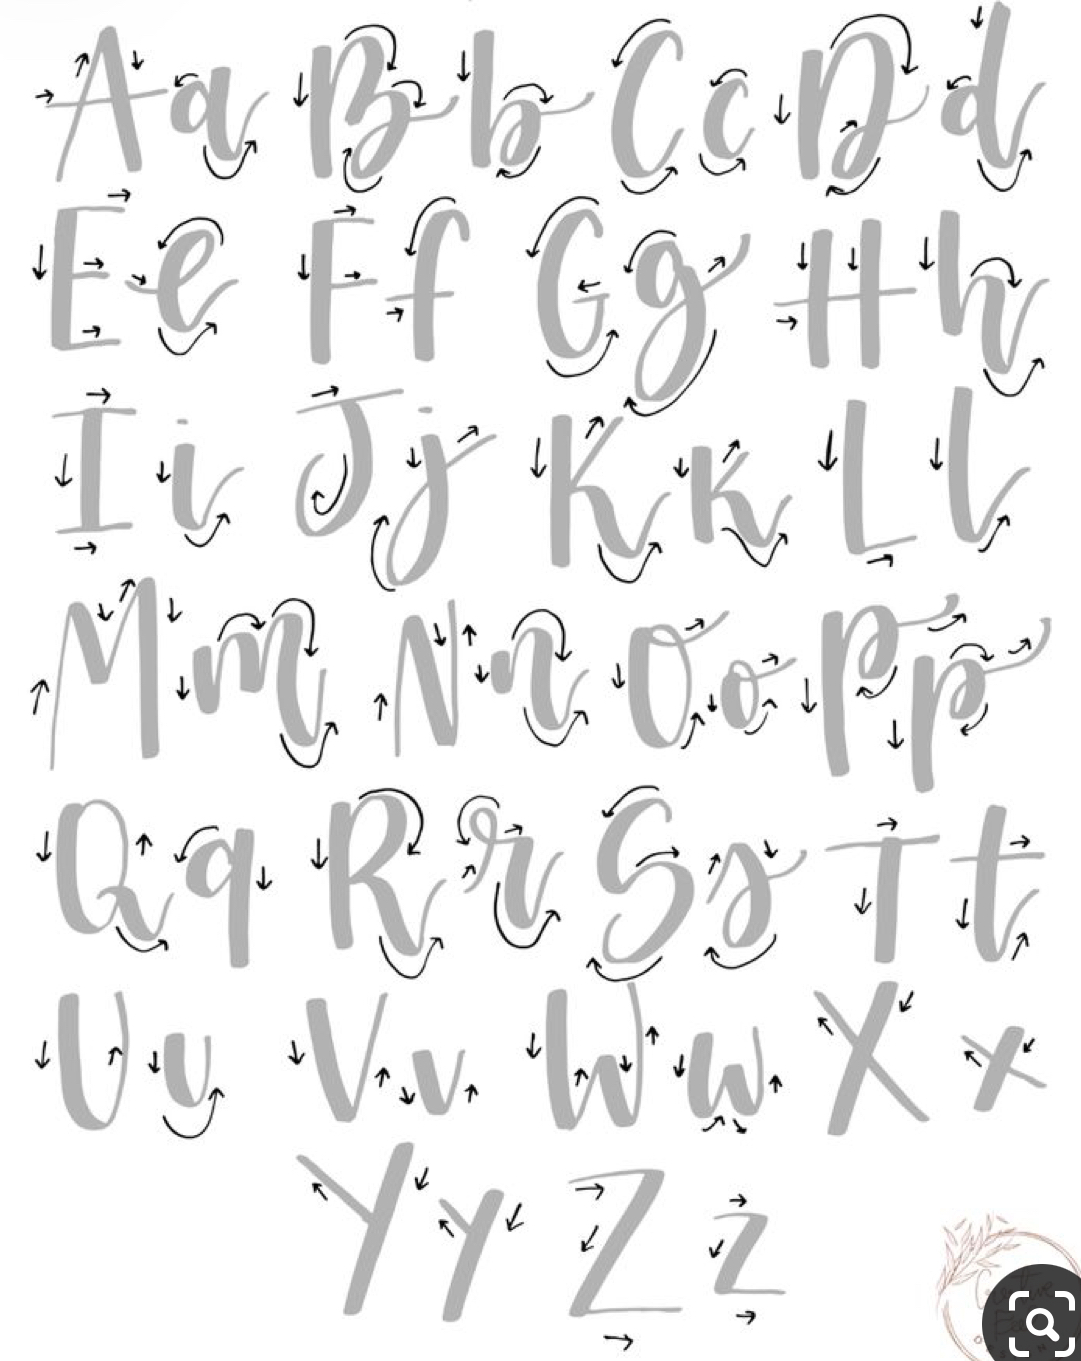 A a B b C c D d
E e F f G g H h
I i J j K k L l
M m N n O o P p
Q q R r S s T t
U u V v W w X x
Y y Z z
Creative